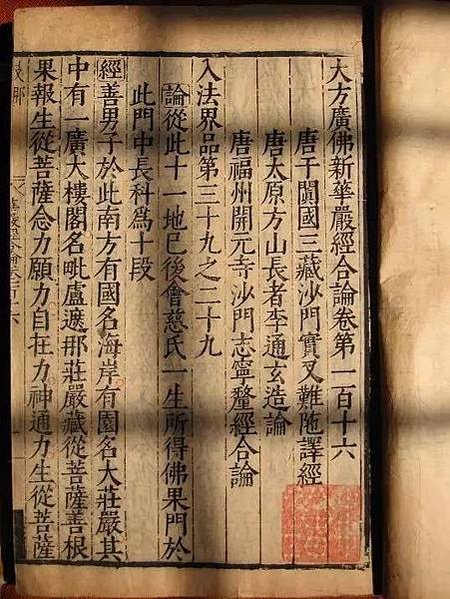 大方廣佛新華嚴經合論卷第一百十六
唐于闐國三藏沙門實叉難陁譯經
唐太原方山長者李通玄造論
唐福州開元寺沙門志寧釐經合論
入法界品第三十九之二十九
論從此十一地已後會慈氏一生所得佛果門於
此門中長科爲十段
經善男子於此南方有國名海岸有園名大莊嚴其
中有一廣大樓閣名毗盧遮那莊嚴藏從菩薩善根
果報生從菩薩念力願力自在力神通力生從菩薩